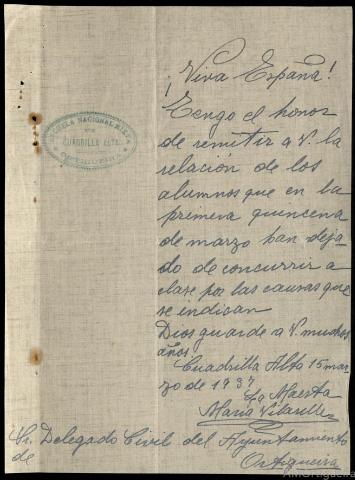 ¡Viva España!
ESCUELA NACIONAL MIXTA
CUADRILLA ALTA
ORTIGUEIRA
Tengo el honor
de remitir a V. la
relación de los
alumnos que en la
primera quincena
de marzo han deja-
do de concurrir a
clase por las causas que
se indican
Dios guarde a V. muchos
años.
Cuadrilla Alta 15 mar
zo de 1937
La Maestra
María Vilarelle
Sr. Delegado Civil del Ayuntamiento
de
Ortigueira
AMOrtigueira